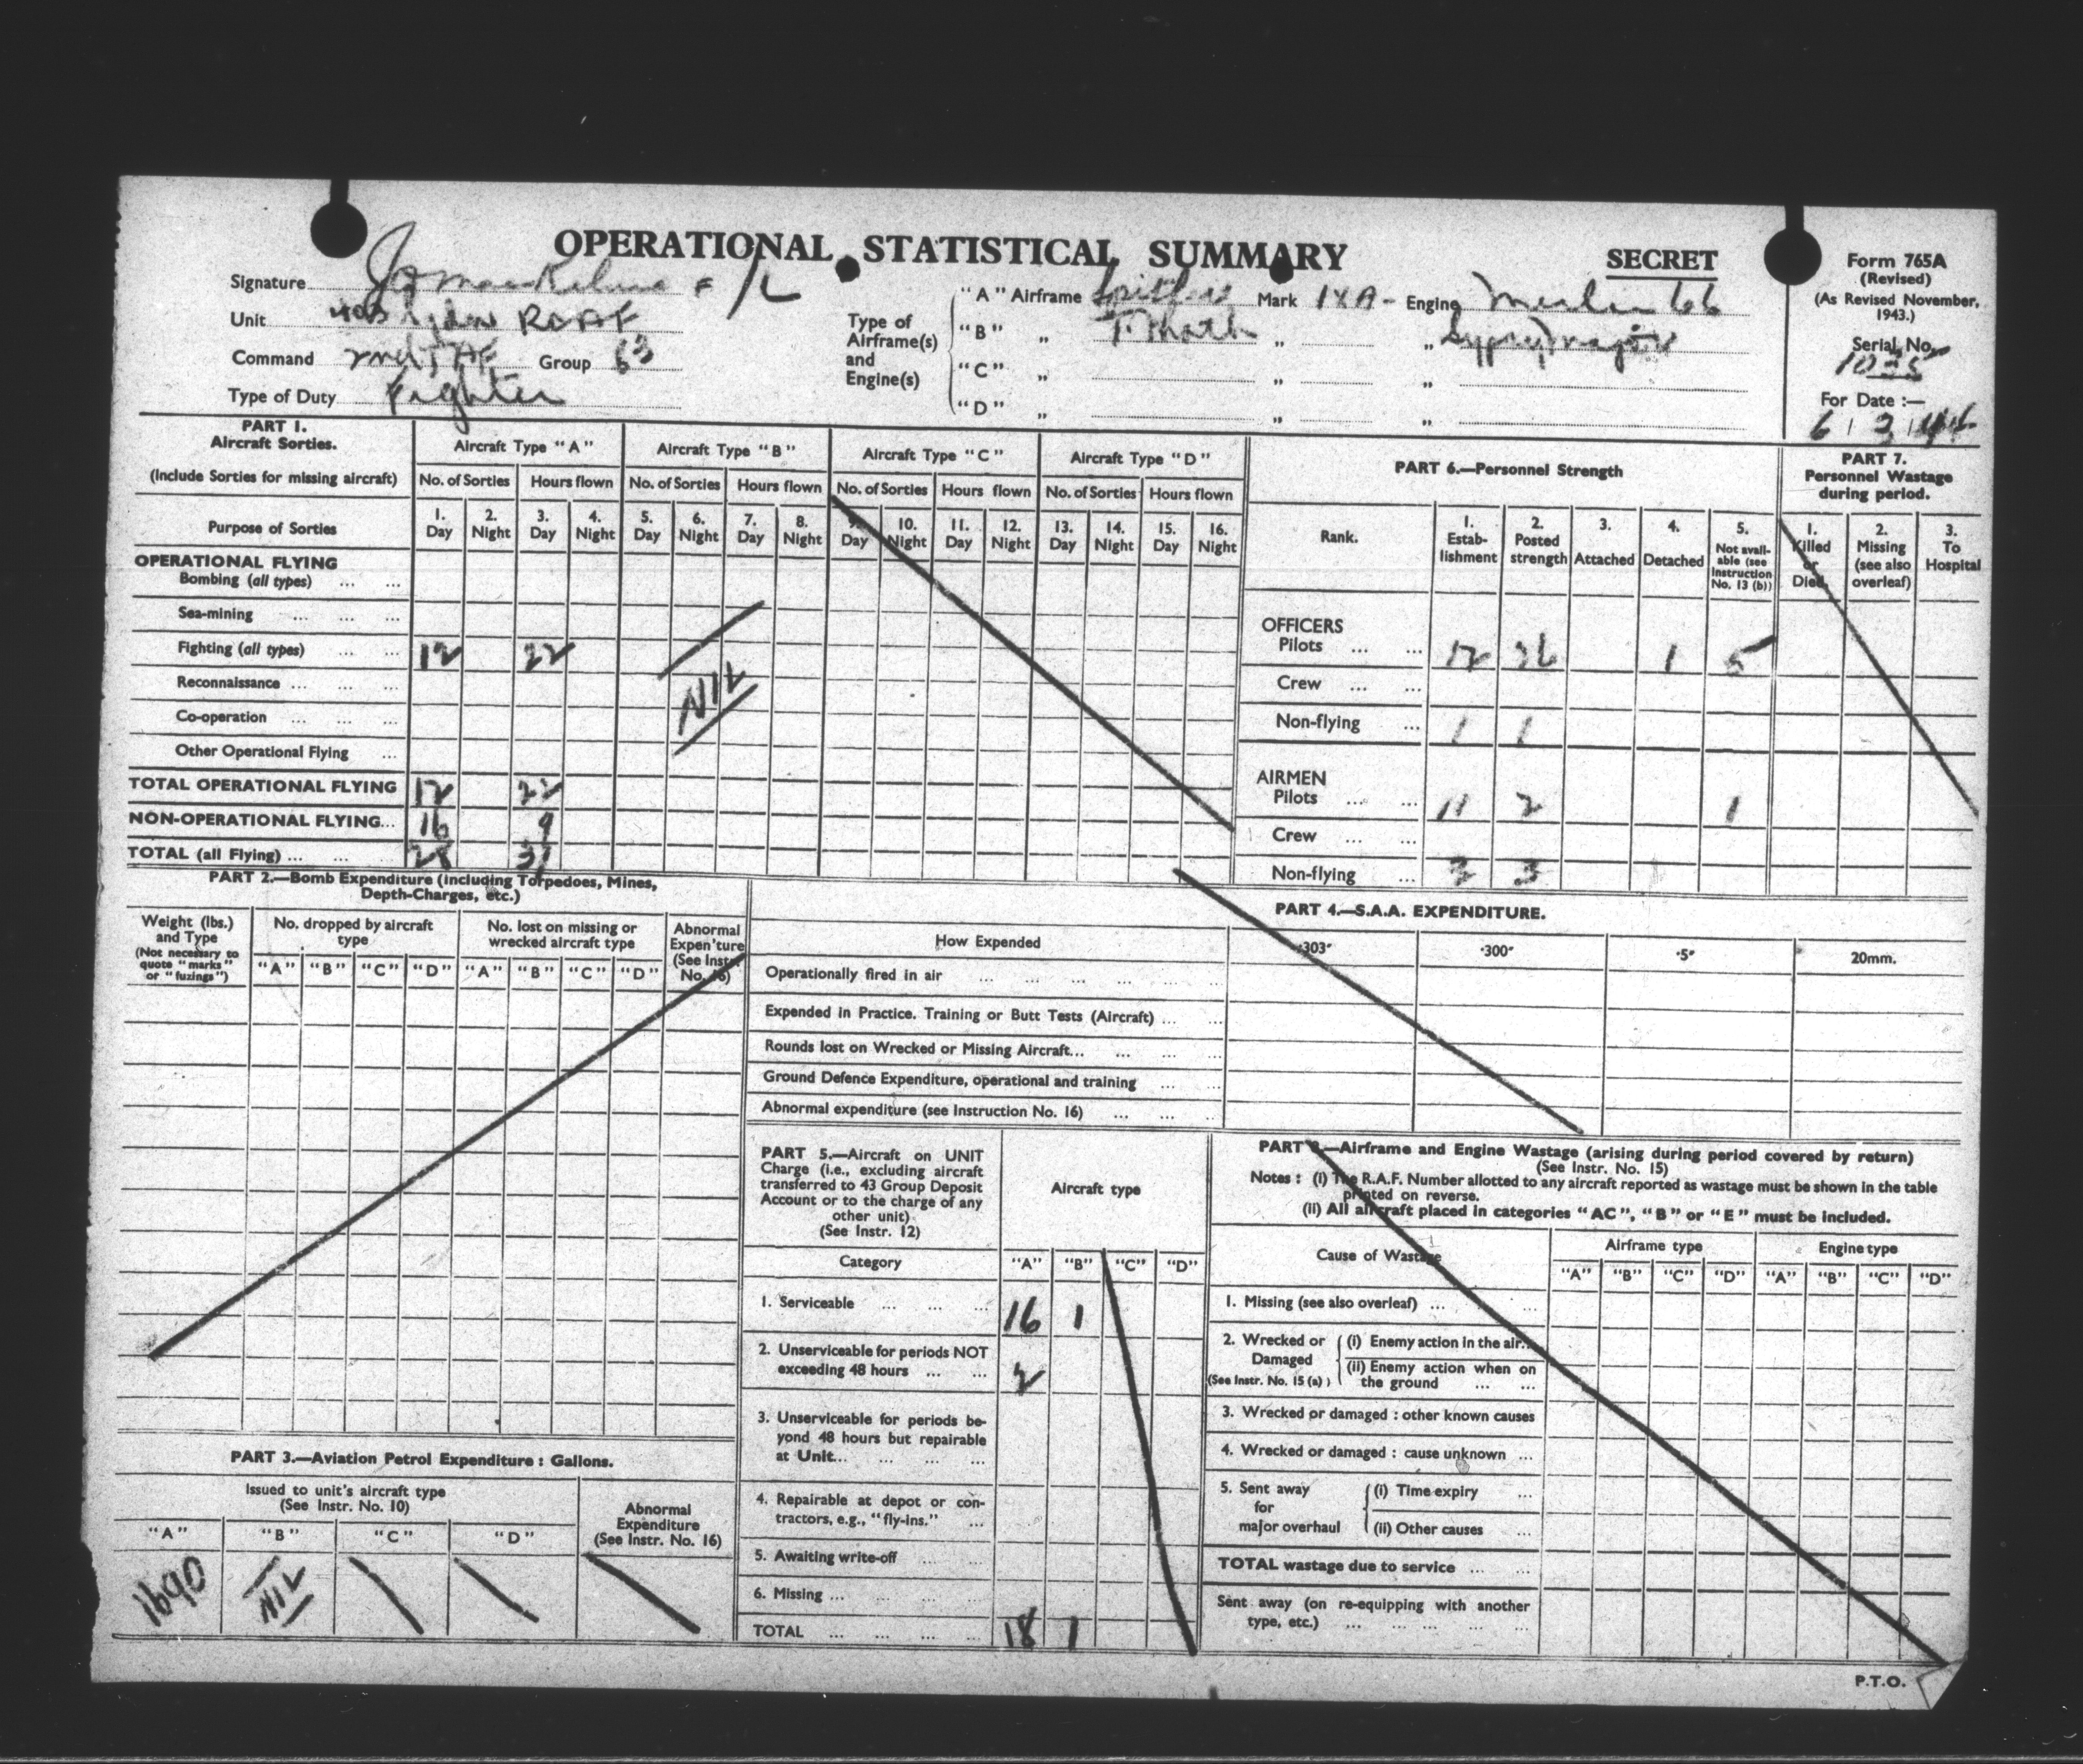 OPERATIONAL STATISTICAL SUMMARY
SECRET
Form 765A
(Revised)
(As Revised November, 1943.)
Serial No.
1035
For Date :—
6 | 3 | 44
Signature F/L
Unit RCAF
Command 2nd TAF Group 63
Type of Duty Fighter
Type of Airframe(s) and Engine(s)
"A" Airframe Spitfire Mark IXA - Engine Merlin 66
"B" „ T. Moth „ „ Gypsy Major
"C" „ „ „
"D" „ „ „
PART 1.
Aircraft Sorties.
(Include Sorties for missing aircraft)
Purpose of Sorties
Aircraft Type "A" Aircraft Type "B" Aircraft Type "C" Aircraft Type "D"
No. of Sorties Hours flown No. of Sorties Hours flown No. of Sorties Hours flown No. of Sorties Hours flown
1. Day 2. Night 3. Day 4. Night 5. Day 6. Night 7. Day 8. Night 9. Day 10. Night 11. Day 12. Night 13. Day 14. Night 15. Day 16. Night
OPERATIONAL FLYING
Bombing (all types) ... ...
Sea-mining ... ... ...
Fighting (all types) ... ... 12 22
Reconnaissance ... ... ...
NIL
Co-operation ... ... ...
Other Operational Flying ...
TOTAL OPERATIONAL FLYING 12 22
NON-OPERATIONAL FLYING... 16 9
TOTAL (all Flying) ... ... ... 28 31
PART 6.—Personnel Strength
Rank.
1. Estab-lishment 2. Posted strength 3. Attached 4. Detached 5. Not avail-able (see Instruction No. 13 (b))
OFFICERS
Pilots ... ... 12 26 1 5
Crew ... ...
Non-flying ... 1 1
AIRMEN
Pilots ... ... 11 2 1
Crew ... ...
Non-flying ... 3 3
PART 7.
Personnel Wastage during period.
1. Killed or Died. 2. Missing (see also overleaf) 3. To Hospital
PART 2.—Bomb Expenditure (including Torpedoes, Mines,
Depth-Charges, etc.)
Weight (lbs.) and Type
(Not necessary to quote "marks" or "fuzings")
No. dropped by aircraft type
No. lost on missing or wrecked aircraft type
Abnormal Expen'ture (See Instr. No. 16)
"A" "B" "C" "D" "A" "B" "C" "D"
PART 4.—S.A.A. EXPENDITURE.
How Expended ·303" ·300" ·5" 20mm.
Operationally fired in air ... ... ... ... ... ...
Expended in Practice. Training or Butt Tests (Aircraft) ... ...
Rounds lost on Wrecked or Missing Aircraft... ... ... ...
Ground Defence Expenditure, operational and training ... ...
Abnormal expenditure (see Instruction No. 16) ... ... ...
PART 3.—Aviation Petrol Expenditure : Gallons.
Issued to unit's aircraft type
(See Instr. No. 10)
Abnormal Expenditure (See Instr. No. 16)
"A" "B" "C" "D"
1690 NIL
PART 5.—Aircraft on UNIT
Charge (i.e., excluding aircraft
transferred to 43 Group Deposit
Account or to the charge of any
other unit)
(See Instr. 12)
Aircraft type
Category "A" "B" "C" "D"
1. Serviceable ... ... ... 16 1
2. Unserviceable for periods NOT
exceeding 48 hours ... ... 2
3. Unserviceable for periods be-
yond 48 hours but repairable
at Unit... ... ... ...
4. Repairable at depot or con-
tractors, e.g., "fly-ins." ...
5. Awaiting write-off ... ...
6. Missing ... ... ... ...
TOTAL ... ... ... ... 18 1
PART 8.—Airframe and Engine Wastage (arising during period covered by return)
(See Instr. No. 15)
Notes : (i) The R.A.F. Number allotted to any aircraft reported as wastage must be shown in the table
printed on reverse.
(ii) All aircraft placed in categories "AC", "B" or "E" must be included.
Cause of Wastage
Airframe type Engine type
"A" "B" "C" "D" "A" "B" "C" "D"
1. Missing (see also overleaf) ... ...
2. Wrecked or Damaged (See Instr. No. 15 (a))
(i) Enemy action in the air...
(ii) Enemy action when on
the ground ... ...
3. Wrecked or damaged : other known causes
4. Wrecked or damaged : cause unknown ...
5. Sent away for major overhaul
(i) Time expiry ...
(ii) Other causes ...
TOTAL wastage due to service ... ...
Sent away (on re-equipping with another
type, etc.) ... ... ... ... ...
P.T.O.